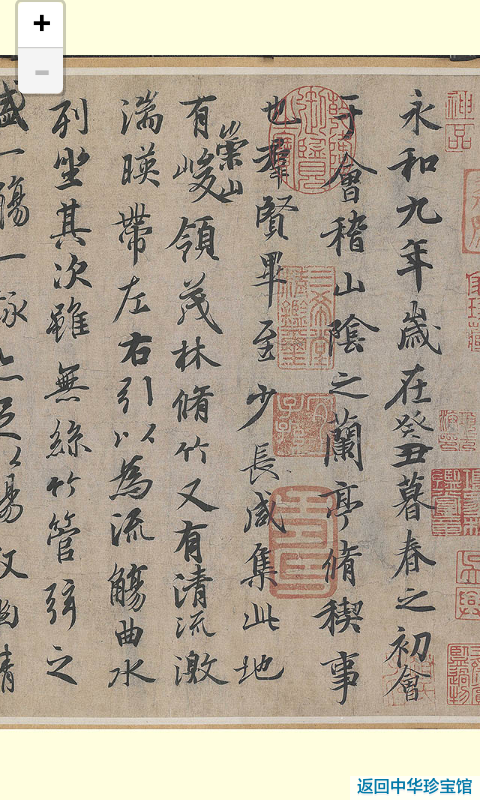 +
−
神品
永和九年歲在癸丑暮春之初會
于會稽山陰之蘭亭脩稧事
也羣賢畢至少長咸集此地
有崇山峻領茂林脩竹又有清流激
湍暎帶左右引以為流觴曲水
列坐其次雖無絲竹管弦之
盛一觴一詠亦足以暢叙幽情
三希堂精鑑璽
宜子孫
返回中华珍宝馆